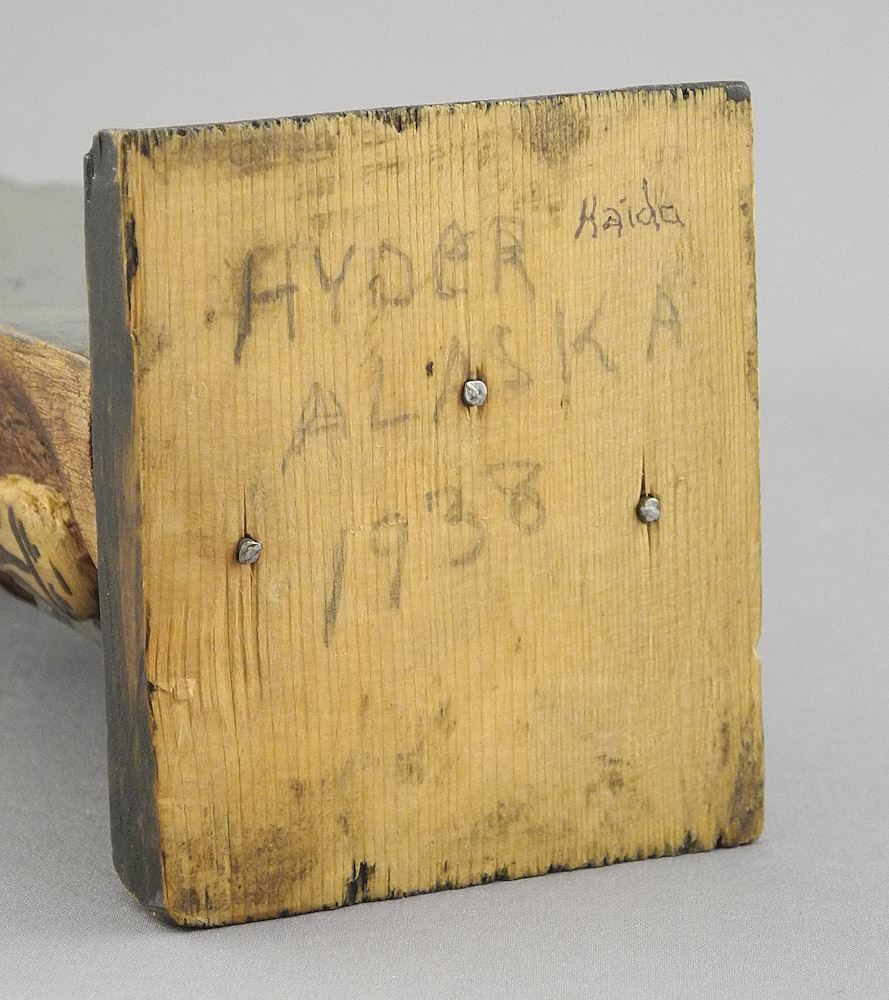 Haida
HYDER
ALASKA
1938